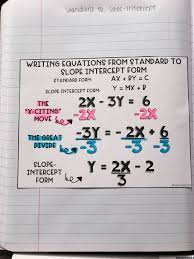 Standard to Slope-Intercept
WRITING EQUATIONS FROM STANDARD TO
SLOPE INTERCEPT FORM
STANDARD FORM: AX + BY = C
SLOPE INTERCEPT FORM: Y = MX + B
THE "X-CITING" MOVE
2X - 3Y = 6
-2X -2X
THE GREAT DIVIDE
-3Y = -2X + 6
-3 -3 -3
SLOPE-INTERCEPT FORM
Y = 2X - 2
3